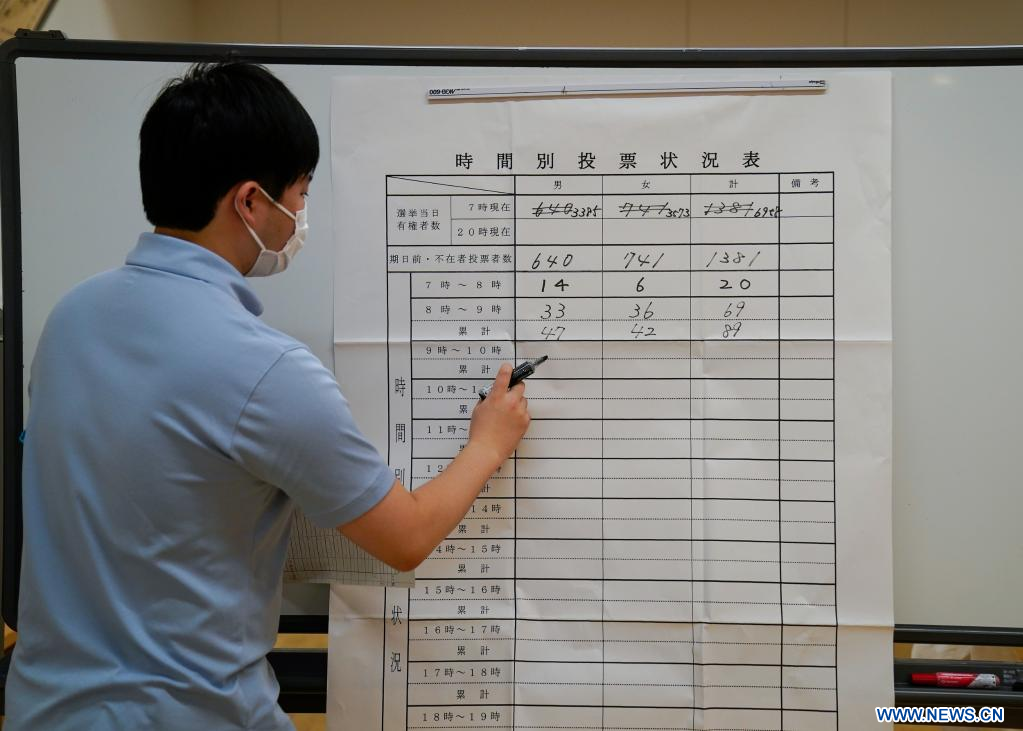 時間別投票状況表
男 女 計 備考
選挙当日有権者数 7時現在 640 3385 741 3573 1381 6958
20時現在
期日前・不在者投票者数 640 741 1381
7時～8時 14 6 20
8時～9時 33 36 69
累計 47 42 89
9時～10時
累計
10時～1
累
11時～
12 時
計
14時
累計
4時～15時
累計
15時～16時
累計
16時～17時
累計
17時～18時
累計
18時～19時
時間別
状況
WWW.NEWS.CN